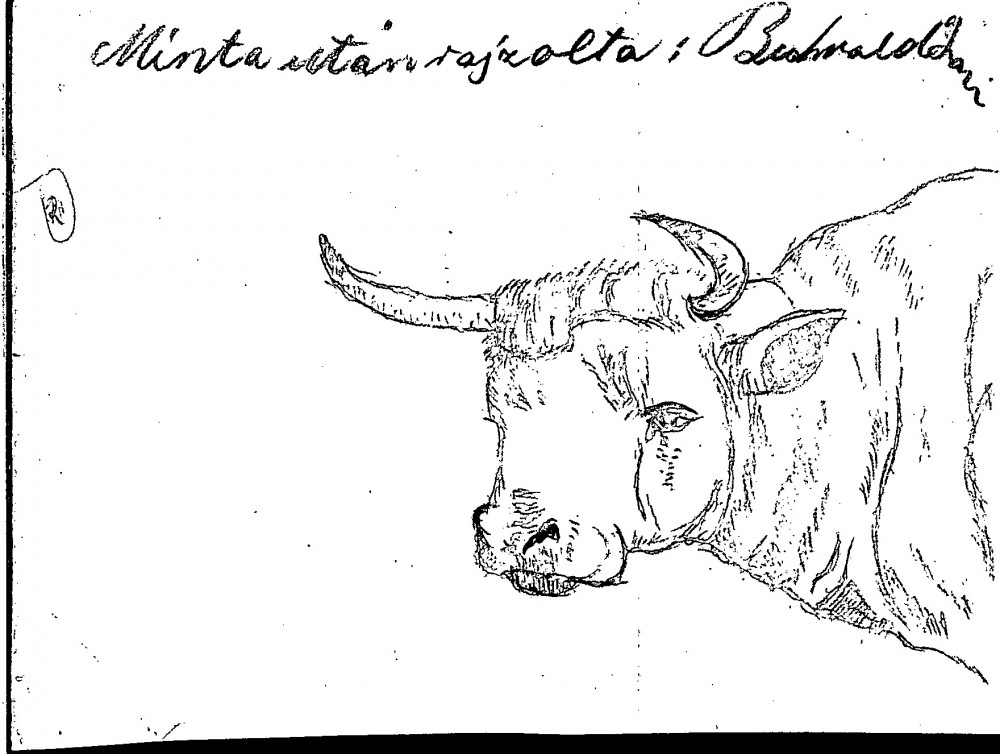 Minta után rajzolta : Buchvald
R